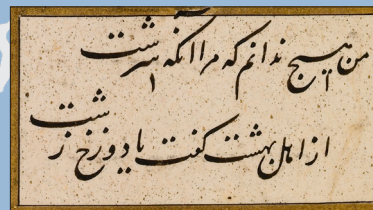 من هیچ ندانم که مرا آنکه سرشت
از اهل بهشت گفت یا دوزخ زشت